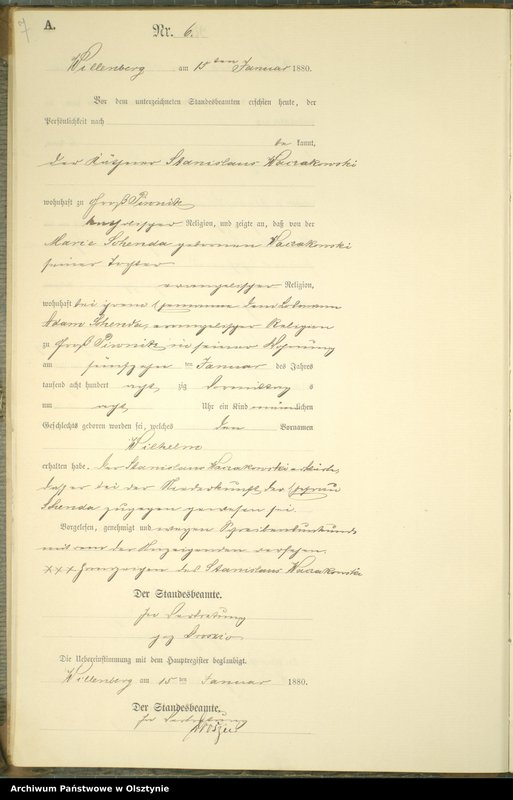 7
A.
Nr. 6.
Willenberg am 15ten Januar 1880.
Vor dem unterzeichneten Standesbeamten erschien heute, der
Persönlichkeit nach
be kannt,
der Käthner Stanislaus Kaczakowski
wohnhaft zu Groß Piwnitz
katholischer Religion, und zeigte an, daß von der
Marie Schenda geborenen Kaczakowski
seiner Tochter
evangelischer Religion,
wohnhaft bei ihrem Ehemanne dem Losmann
Adam Schenda, evangelischer Religion
zu Groß Piwnitz in seiner Wohnung
am fünfzehn ten Januar des Jahres
tausend acht hundert acht zig Vormittag s
um acht Uhr ein Kind männlichen
Geschlechts geboren worden sei, welches den Vornamen
Wilhelm
erhalten habe. Der Stanislaus Kaczakowski erklärte,
daß er bei der Niederkunft der Ehefrau
Schenda zugegen gewesen sei.
Vorgelesen, genehmigt und wegen Schreibensunkunde
mit der Anzeigenden versehen.
xxx Handzeichen des Stanislaus Kaczakowski
Der Standesbeamte.
In Vertretung
gez
Die Uebereinstimmung mit dem Hauptregister beglaubigt.
Willenberg am 15 ten Januar 1880.
Der Standesbeamte.
In Vertretung
Archiwum Państwowe w Olsztynie